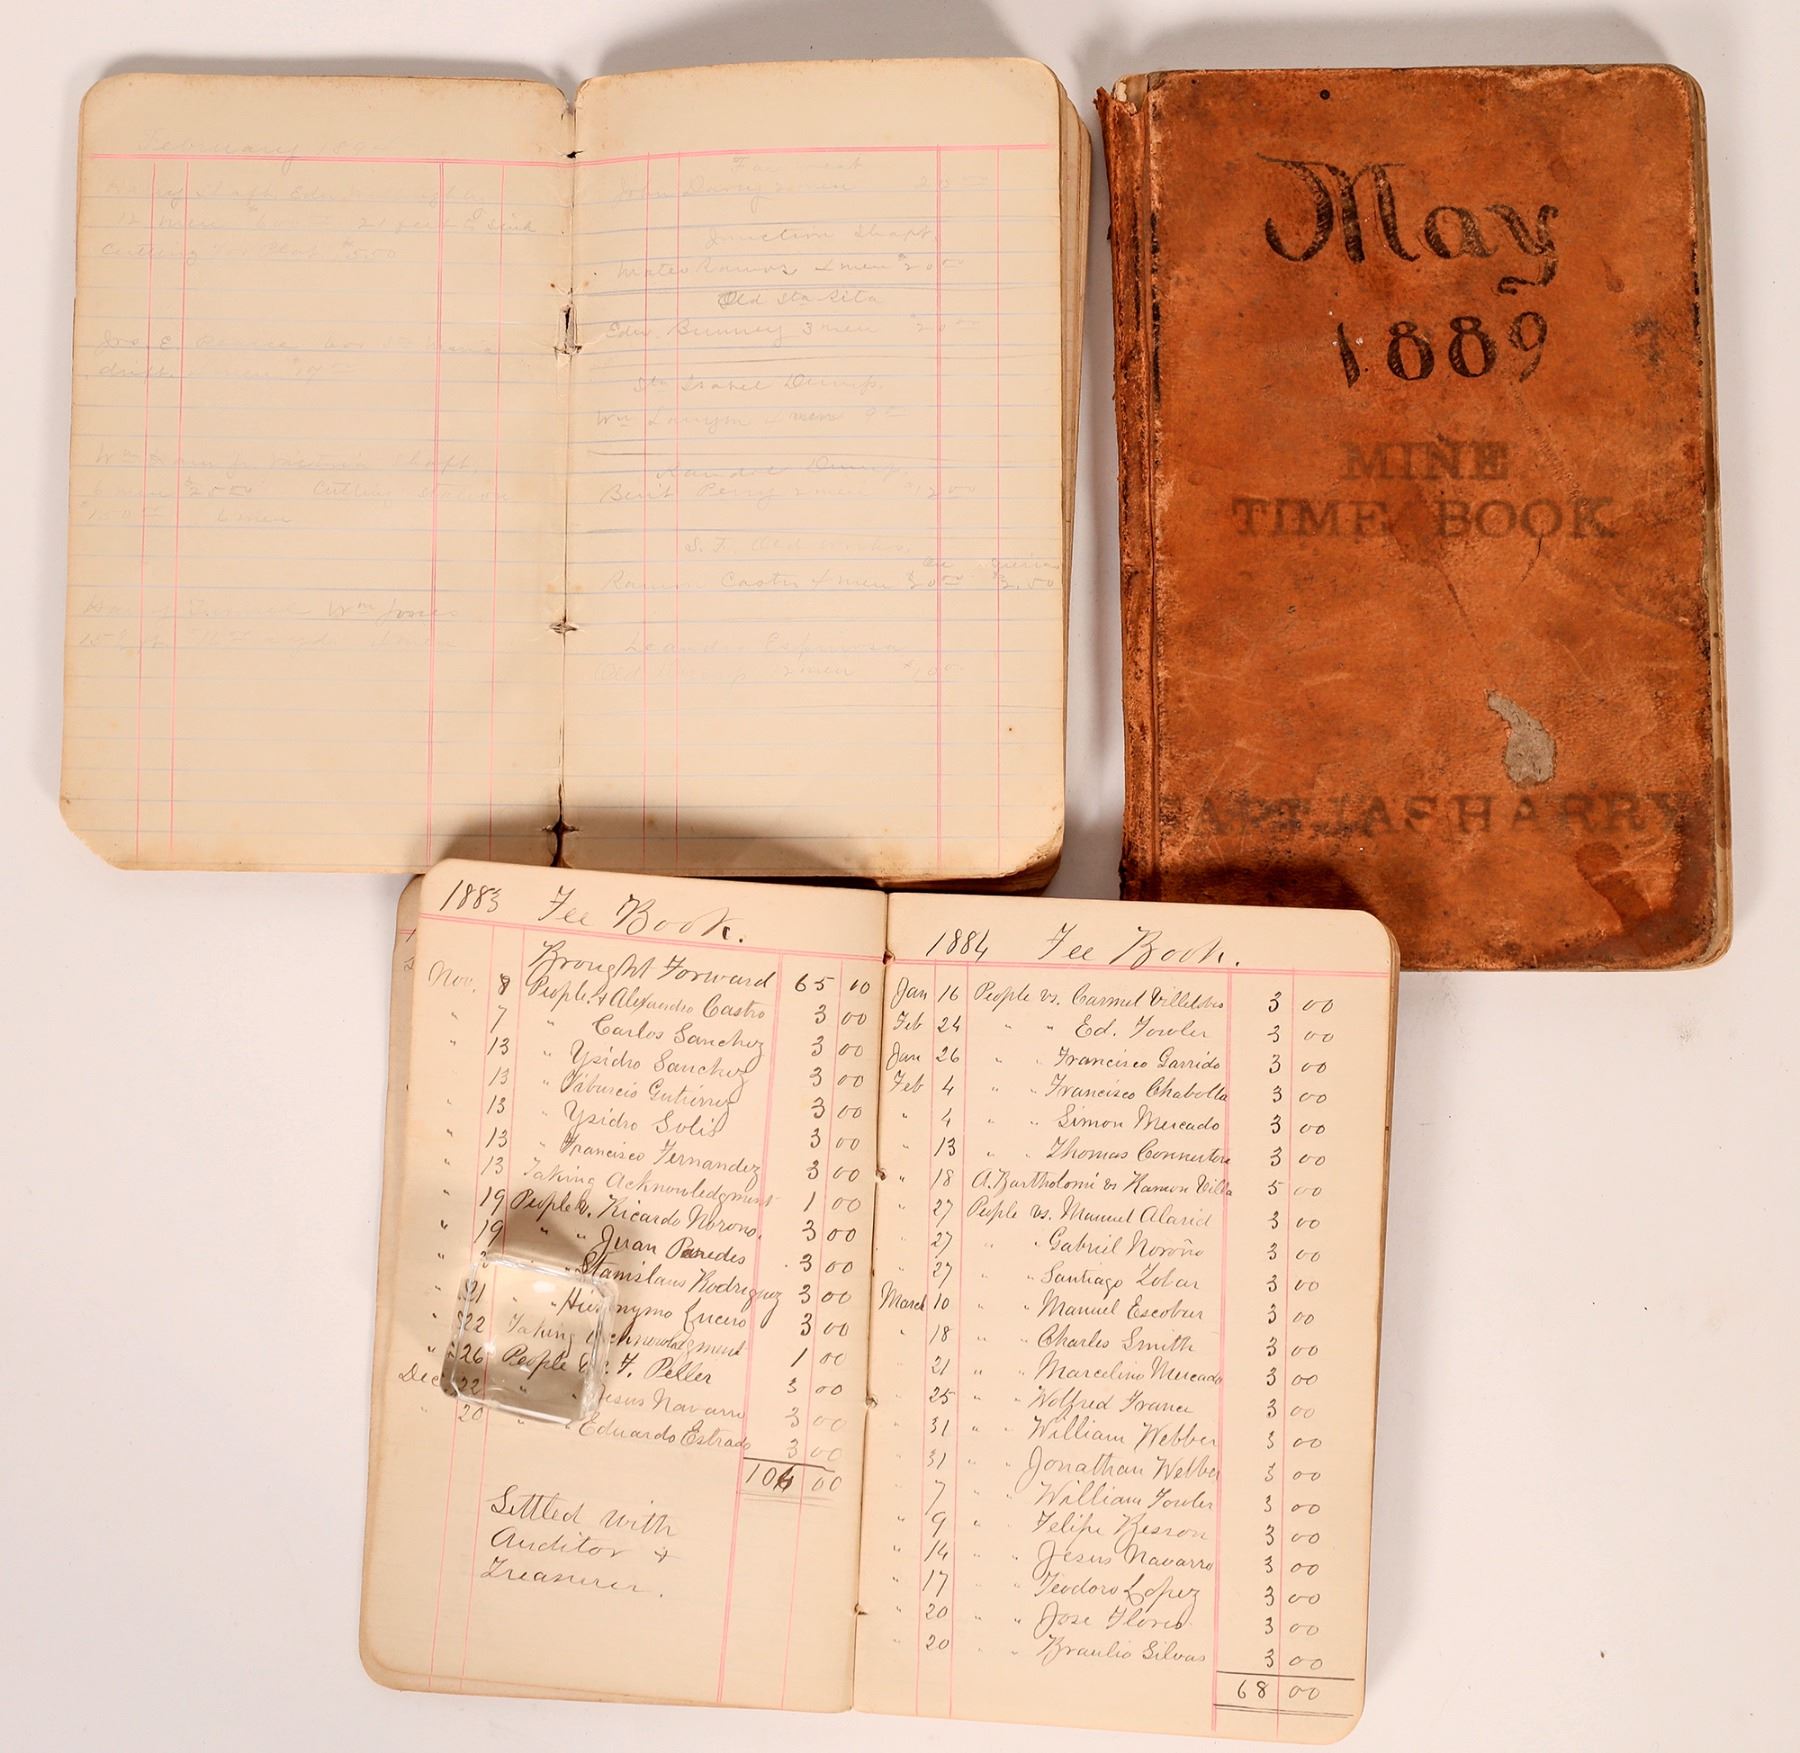 February 189
12 men 21 feet to sink
cutting for Plat $500
drift men $17 00
Wm Shaft.
6 men $25 00 Cutting station
$150 00 6 men
Harry Wm Jones
4 men
Far west
John Davey 2 men 20 00
Junction Shaft.
Mateo Ramos 4 men $20 00
Old Sta Rita
Edw. Bunney 3 men $20 00
Sta Isabel Dump.
Wm 4 men 9 00
Randol Dump.
Benit Perry 2 men $12 00
S. F. Old works.
Ramon Castro 4 men 30 00 $3.50
Leandro Espinosa
Old Dump 2 men $10 00
May
1889
MINE
TIME BOOK
CAPT. JAS HARRY
1883 Fee Book.
Brought Forward 65 00
Nov. 8 People vs Alexandro Castro 3 00
" 7 " Carlos Sanchez 3 00
" 13 " Ysidro Sanchez 3 00
" 13 " Tiburcio Gutierrez 3 00
" 13 " Ysidro Solis 3 00
" 13 " Francisco Fernandez 3 00
" 13 Taking Acknowledgment 1 00
" 19 People vs. Ricardo Norono. 3 00
" 19 " " Juan Paredes 3 00
" " Stanislaus Rodriguez 3 00
" 21 " " Hieronymo Lucero 3 00
" 22 Taking Acknowledgment 1 00
" 26 People vs. F. Peller 3 00
Dec. 22 " " Jesus Navarro 3 00
" 20 " " Eduardo Estrado 3 00
104 00
Settled with
Auditor +
Treasurer.
1884 Fee Book.
Jan 16 People vs. Carmel 3 00
Feb 24 " " Ed. Fowler 3 00
Jan 26 " " Francisco Garrido 3 00
Feb 4 " " Francisco Chabolla 3 00
" 4 " " Simon Mercado 3 00
" 13 " " Thomas 3 00
" 18 A. Bartholomi vs Ramon Villa 5 00
" 27 People vs. Manuel Alarid 3 00
" 27 " " Gabriel Noroño 3 00
" 27 " " Santiago Tobar 3 00
March 10 " " Manuel Escobar 3 00
" 18 " " Charles Smith 3 00
" 21 " " Marcelino Mercado 3 00
" 25 " " Wolfred France 3 00
" 31 " " William Webber 3 00
" 31 " " Jonathan Webber 3 00
" 7 " " William Fowler 3 00
" 9 " " Felipe Besson 3 00
" 14 " " Jesus Navarro 3 00
" 17 " " Teodoro Lopez 3 00
" 20 " " Jose Flores 3 00
" 20 " " Braulio Silvas 3 00
68 00